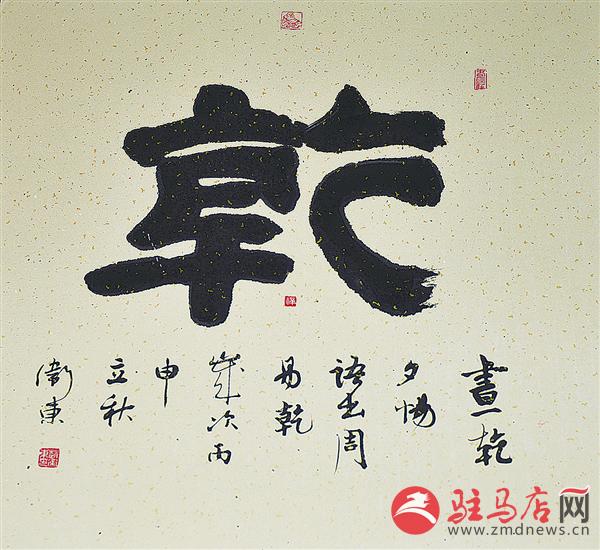 乾
昼乾
夕惕
语出周
易乾
岁次丙
申
立秋
卫东
驻马店网
www.zmdnews.cn